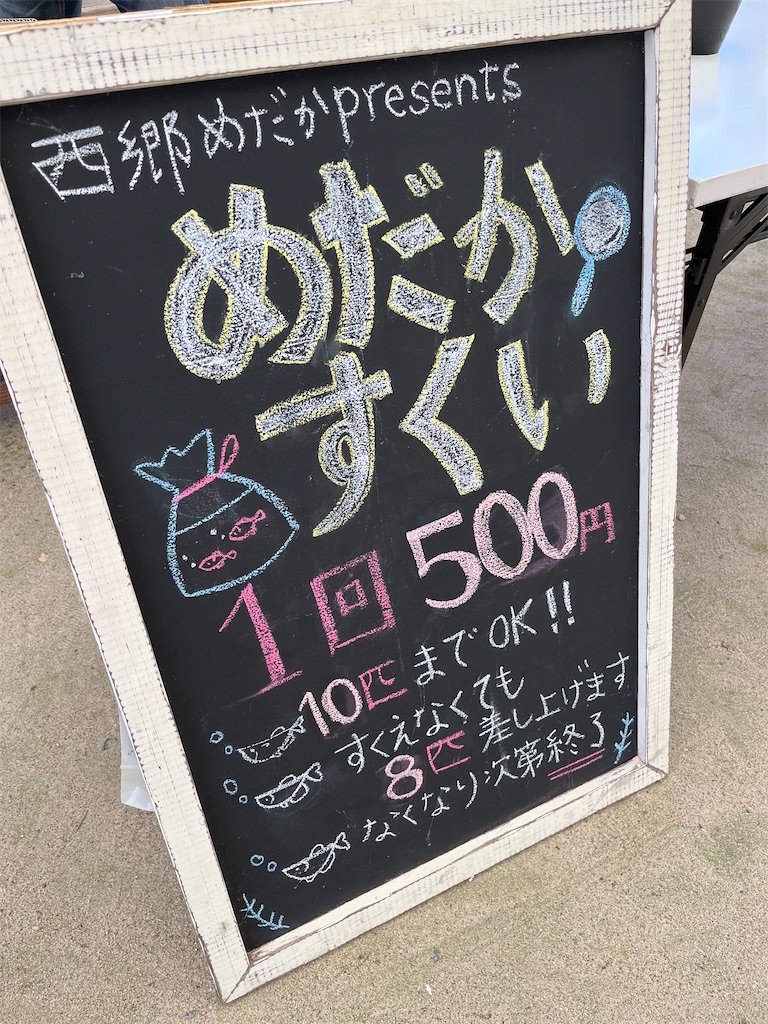 西郷めだかpresents
めだか
すくい
1回500円
10匹までOK!!
すくえなくても
8匹差し上げます
なくなり次第終了